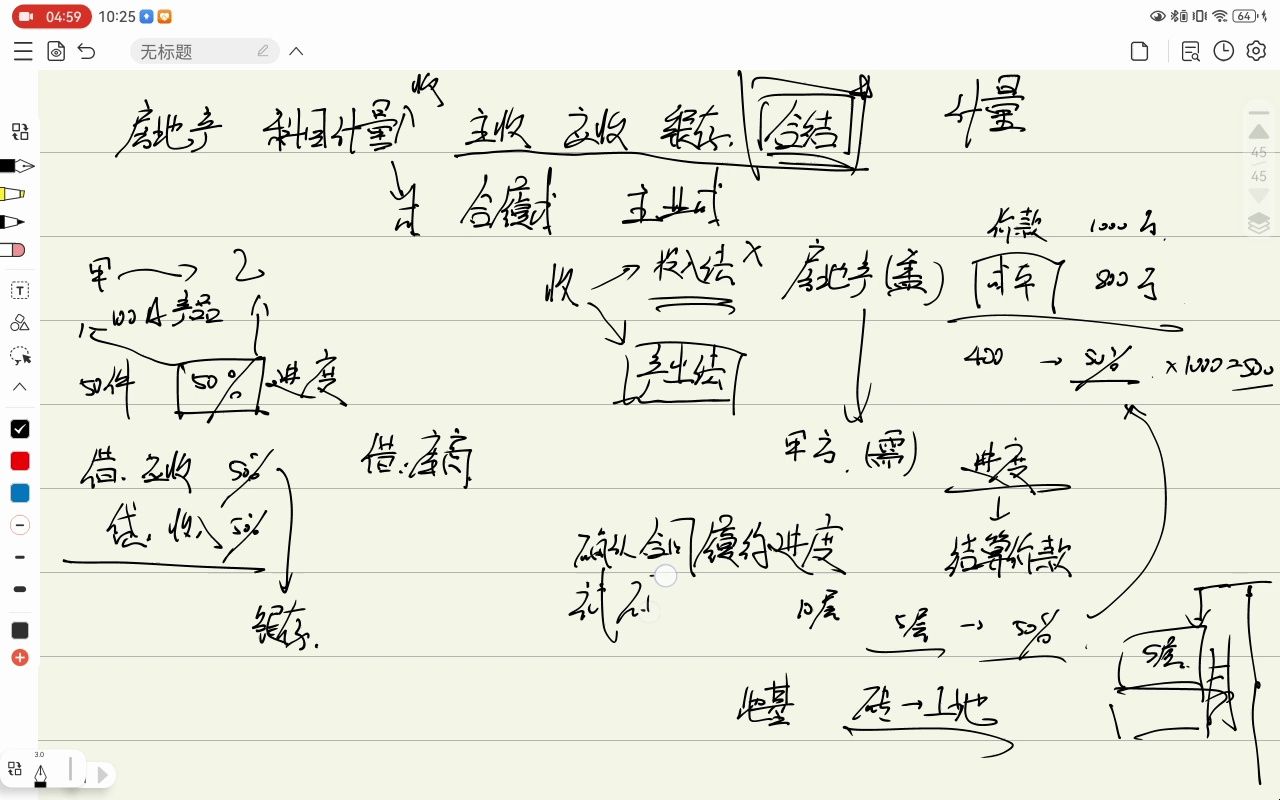 04:59 10:25 64
无标题
收
房地产 科目计量 主收 应收 银存. 合结 计量
合履成 主业成
价款 1000万
甲 → 乙
收 → 收入结 × 房地产(盖) 成本 800万
100件产品
50件 50% 进度
产出结
400 → 50% ×1000=500
45
45
借:应收 50%
借:库商
甲方.(需) 进度
贷:收入 50%
确认合同履约进度
结算价款
银存.
10层 5层 → 50%
5层
地基 砖→工地
3.0